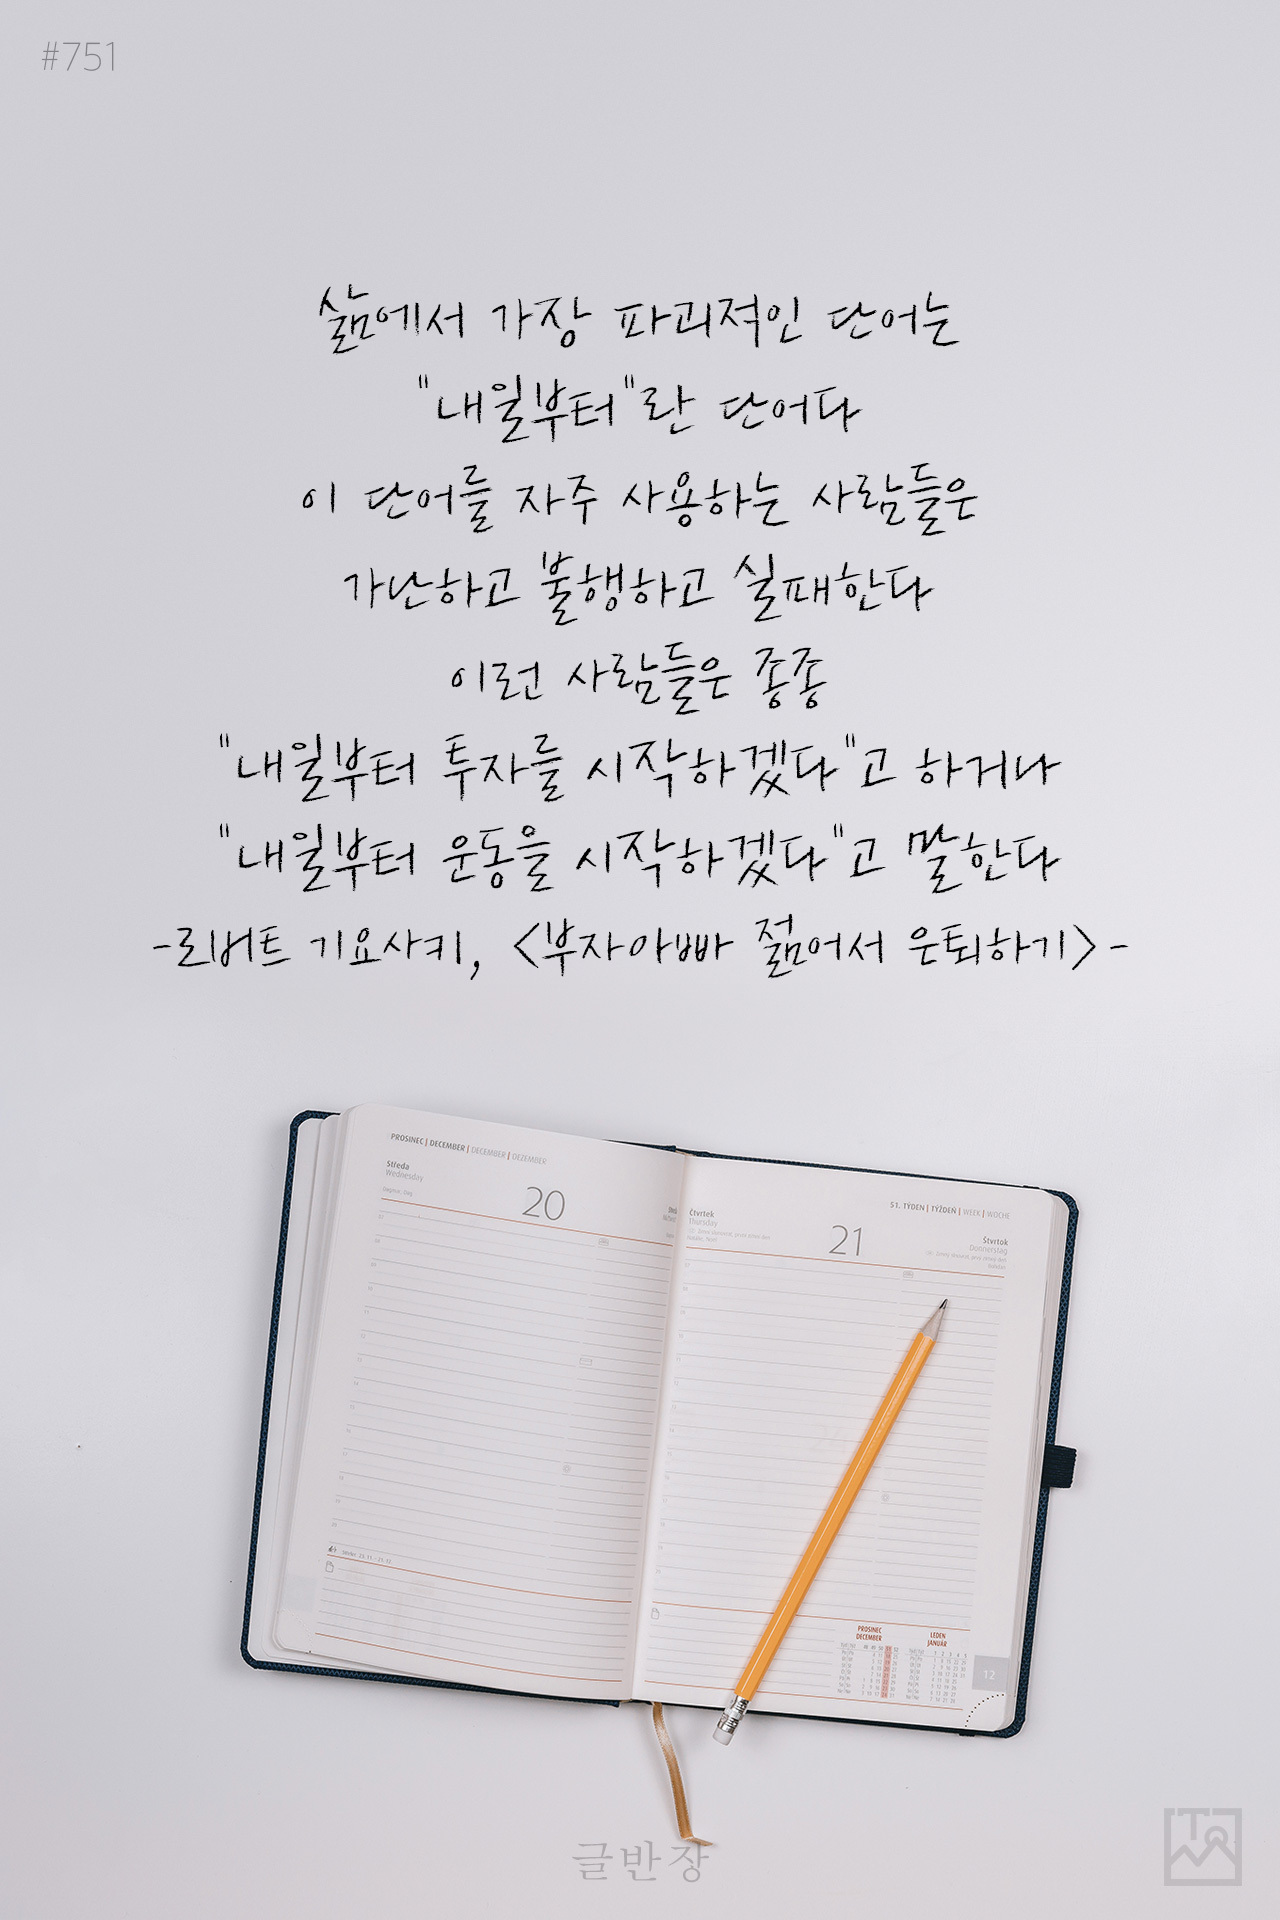 #751
삶에서 가장 파괴적인 단어는
"내일부터"란 단어다
이 단어를 자주 사용하는 사람들은
가난하고 불행하고 실패한다
이런 사람들은 종종
"내일부터 투자를 시작하겠다"고 하거나
"내일부터 운동을 시작하겠다"고 말한다
-로버트 기요사키, <부자아빠 젊어서 은퇴하기>-
PROSINEC | DECEMBER | DECEMBER | DEZEMBER
Středa
Wednesday
20
51. TÝDEN | TÝŽDEŇ | WEEK | WOCHE
Čtvrtek
Thursday
21
Štvrtok
Donnerstag
PROSINEC
DECEMBER
LEDEN
JANUÁR
12
글반장